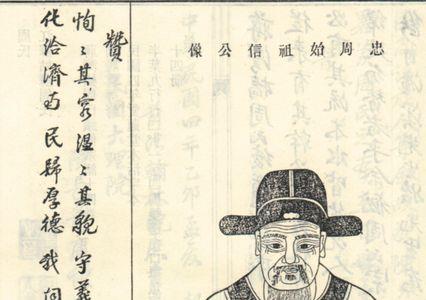 忠周始祖信公像
贊
恂〻其容溫〻其貌守義
化洽濟南民歸厚德我祠